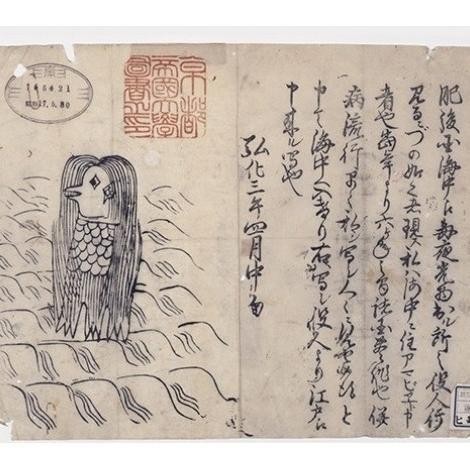 肥後国海中え毎夜光物出ル所之役人行
見るニづの如之者現ス私ハ海中ニ住アマビヱト申
者也当年より六ヶ年之間諸国豊作也併
病流行早々私ヲ写シ人々ニ見セ候得と
申て海中へ入けり右写シ役人より江戸え
申来ル写也
弘化三年四月中旬
京都
帝國大學
圖書之印